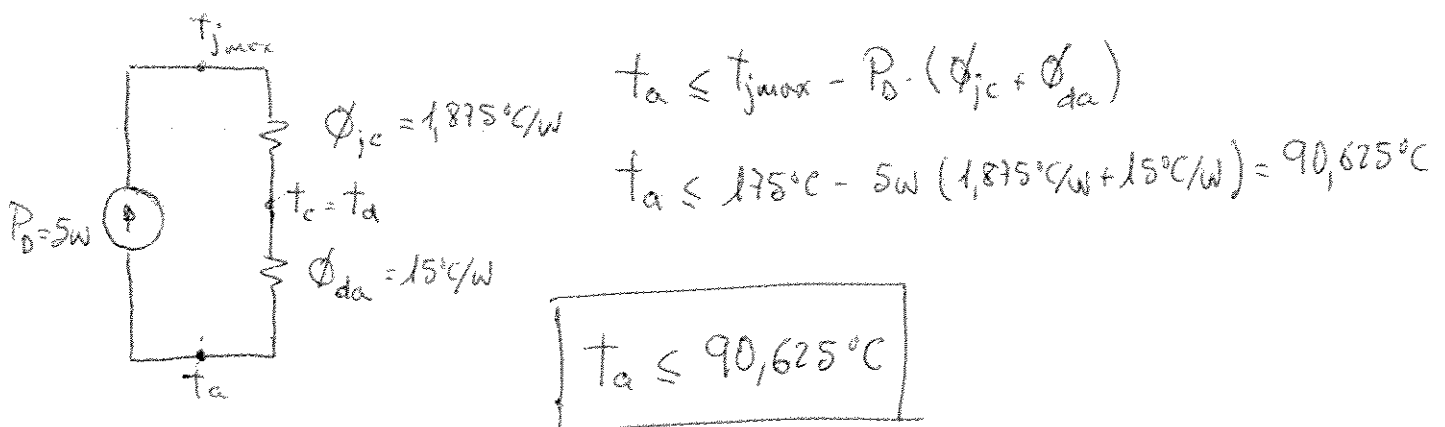 t_jmax
ϕ_jc = 1,875°C/W
t_c = t_d
P_D=5W
ϕ_da = 15°C/W
t_a
t_a ≤ t_jmax - P_D · (ϕ_jc + ϕ_da)
t_a ≤ 175°C - 5W (1,875°C/W + 15°C/W) = 90,625°C
t_a ≤ 90,625°C